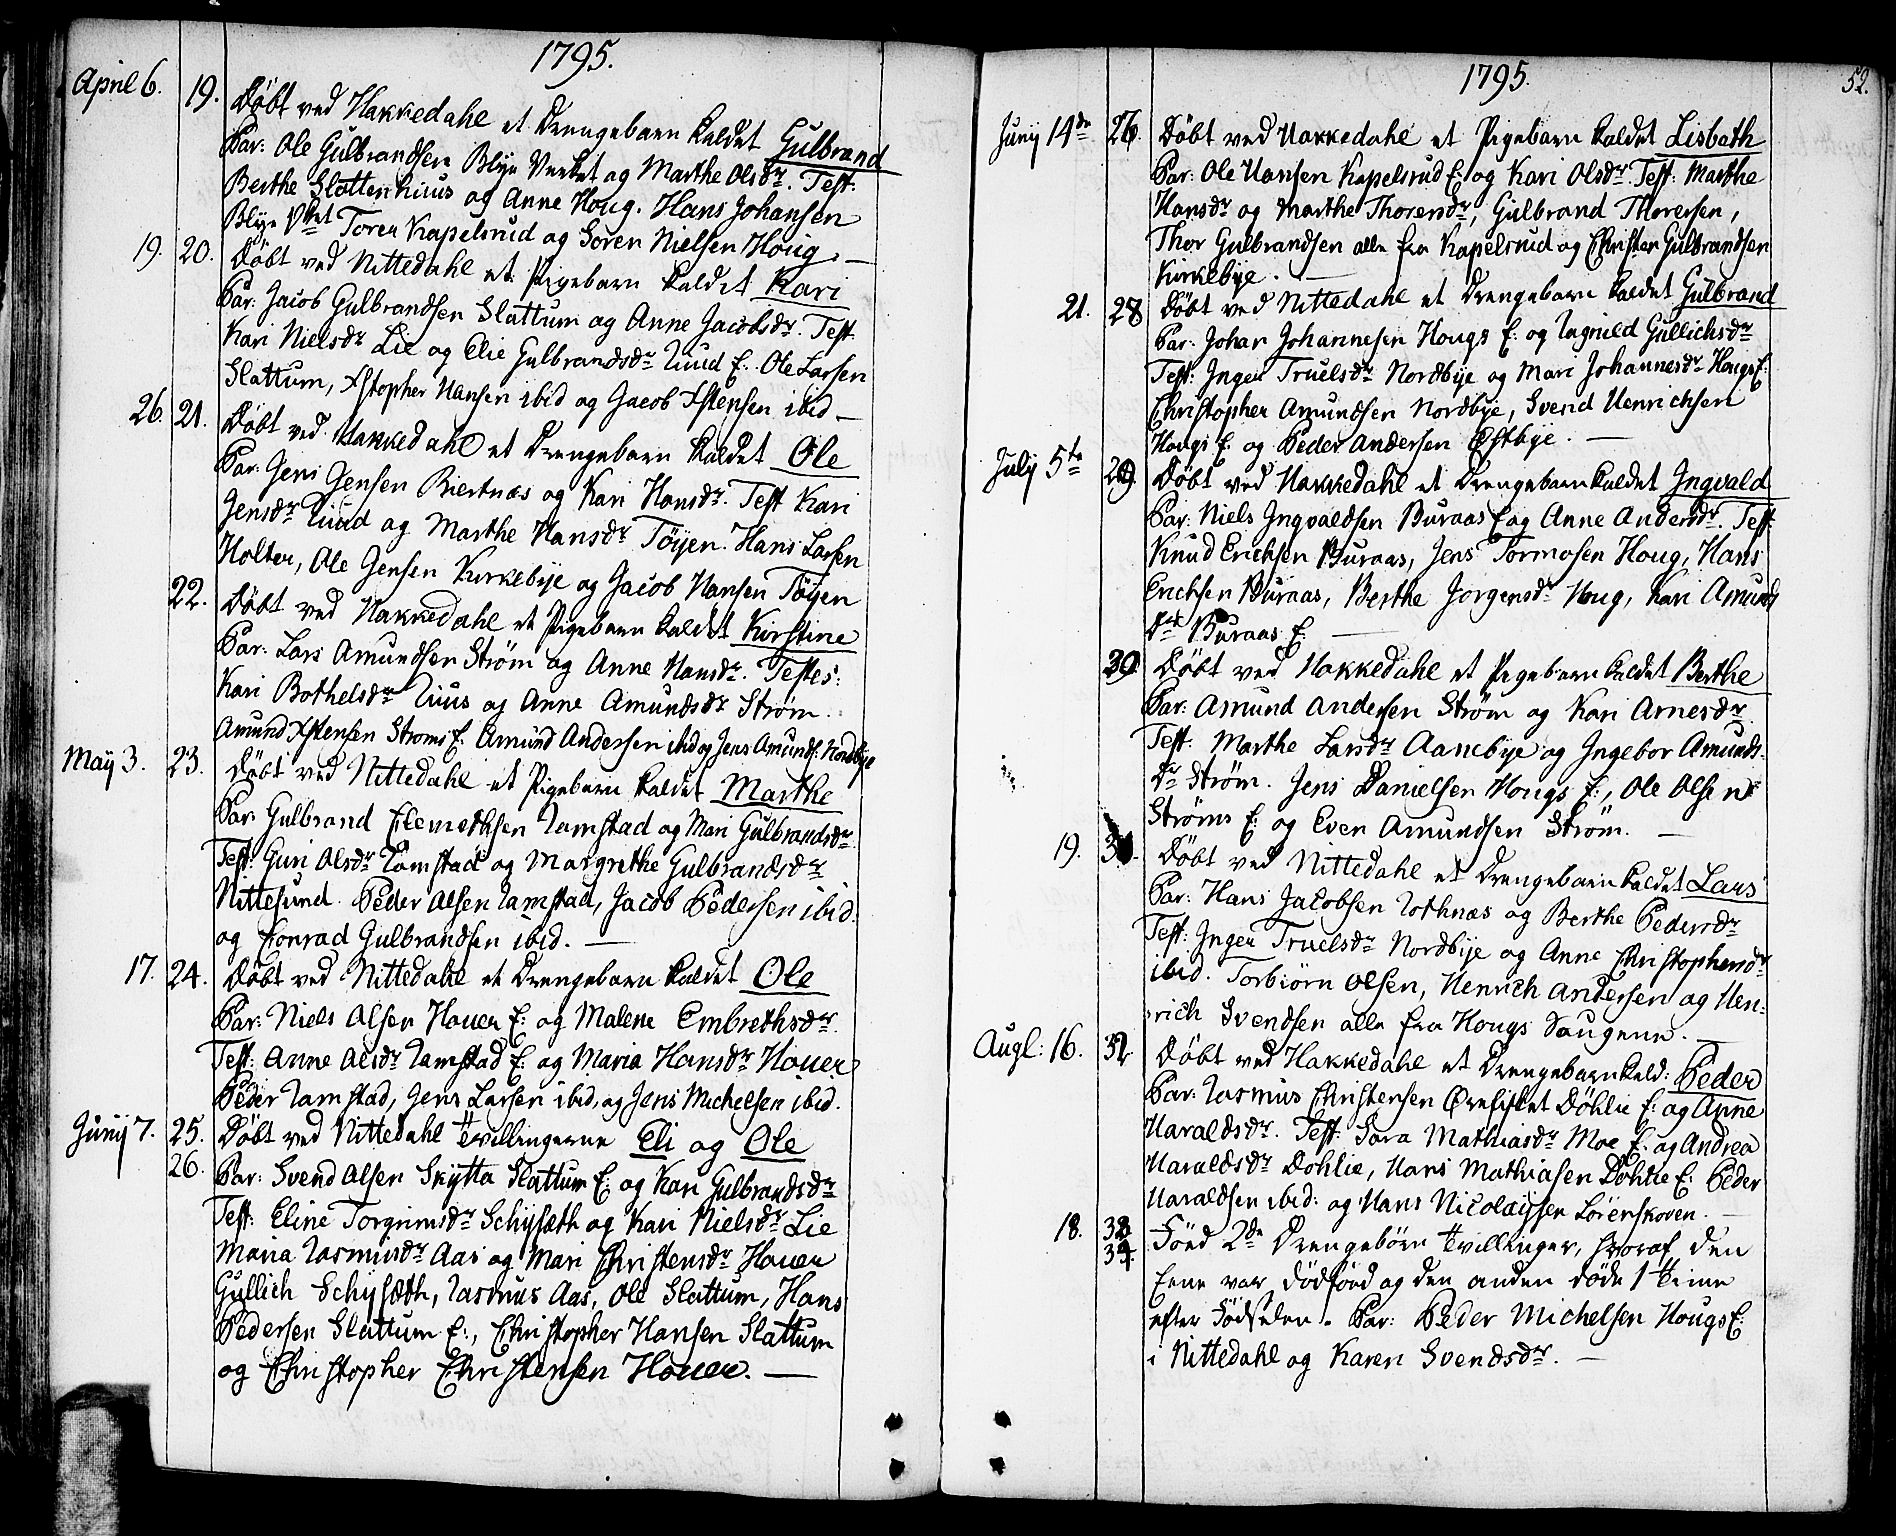 1795.
April 6. 19. Döbt ved Hakkedahl et Drengebarn kaldet Gulbrand
Par: Ole Gulbrandsen Blye Verket og Marthe Olsdr. Test:
Berthe Slattenhuus og Anne Houg. Hans Johansen
Blye Vket Toren Kapelsrud og Soren Nielsen Houg. —
19. 20. Döbt ved Nittedahl et Pigebarn kaldet Kari
Par: Jacob Gulbrandsen Slattum og Anne Jacobsdr. Test
Kari Nielsdr Lie og Elie Gulbrandsdr Ruud E. Ole Larsen
Slattum, Xstopher Hansen ibid og Jacob Xstensen ibid —
26. 21. Döbt ved Hakkedahl et Drengebarn kaldet Ole
Par: Jens Jensen Biertnæs og Kari Hansdr. Test Kari
Jensdr Ruud og Marthe Hansdr Töyen. Hans Larsen
Holter, Ole Jensen Kirkebye og Jacob Hansen Töyen
22. Döbt ved Hakkedahl et Pigebarn kaldet Kirstine
Par: Lars Amundsen Ström og Anne Hansdr. Testes:
Kari Bothelsdr Ruus og Anne Amundsdr Ström.
Amund Xstensen Stroms E. Amund Andersen ibid og Jens Amunds. Nordbye
May 3. 23. Döbt ved Nittedahl et Pigebarn kaldet Marthe
Par: Gulbrand Clemethsen Ramstad og Mari Gulbrandsdr
Test: Guri Olsdr Ramstad og Margrethe Gulbrandsdr
Nittesund. Peder Olsen Ramstad, Jacob Pedersen ibid.
og Conrad Gulbrandsen ibid. —
17. 24. Döbt ved Nittedahl et Drengebarn kaldet Ole
Par: Niels Olsen Houer E: og Malene Embrethsdr.
Test: Anne Olsdr Ramstad E: og Maria Hansdr Houer
Peder Ramstad, Jens Larsen ibid, og Jens Michelsen ibid.
Junij 7. 25. Döbt ved Nittedahl Tvillingerne Eli og Ole
26. Par: Svend Olsen Skytta Slattum E: og Kari Gulbrandsdr
Test: Eline Torgrimsdr Schyset​h og Kari Nielsdr Lie
Maria Rasmusdr Aas og Mari Christensdr Houer
Gullich Schyseth, Rasmus Aas, Ole Slattum, Hans
Pedersen Slattum E:, Christopher Hansen Slattum
og Christopher Christensen Houer. —
1795. 52.
Junij 14de 26. Döbt ved Hakkedahl et Pigebarn kaldet Lisbeth
Par: Ole Hansen Kapelsrud E: og Kari Olsdr. Test: Marthe
Hansdr og Marthe Thorensdr, Gulbrand Thoresen,
Thor Gulbrandsen alle fra Kapelsrud og Christen Gulbrandsen
Kirkebye. —
21. 28 Döbt ved Nittedahl et Drengebarn kaldet Gulbrand
Par: Johan Johannesen Hougs E: og Ragnild Gullichsdr
Test: Inger Truelsdr Nordbye og Mari Johannesdr Hougs E:
Christopher Amundsen Nordbye, Svend Henrichsen
Hougs E: og Peder Andersen Östbye. —
July 5te 29. Döbt ved Hakkedahl et Drengebarn kaldet Ingvald
Par: Niels Ingvaldsen Buraas E og Anne Andersdr. Test:
Knud Erichsen Buraas, Jens Tormosen Houg, Hans
Erichsen Buraas, Berthe Jorgensdr Houg, Kari Amunds
Dr Buraas E: —
30 Döbt ved Hakkedahl et Pigebarn kaldet Berthe
Par: Amund Andersen Ström og Kari Arnesdr
Test: Marthe Larsdr Aanebye og Ingebor Amunds-
Dr Ström. Jens Danielsen Hougs E:, Ole Olsen
Ströms E: og Even Amundsen Ström. —
19. 31. Döbt ved Nittedahl et Drengebarn kaldet Lars
Par: Hans Jacobsen Rothnæs og Berthe Pedersdr
Test: Inger Truelsdr Nordbye og Anne Christophersdr
ibid. Torbiörn Olsen, Henrich Andersen og Hen-
rich Svendsen alle fra Hougs Saugene. —
Augl: 16. 32 Döbt ved Hakkedahl et Drengebarn kald: Peder
Par: Rasmus Christensen Örefisket Döhlie E: og Anne
Haraldsdr. Test: Sara Mathiasdr Moe E: og Andrea
Haraldsdr Dohlie, Hans Mathiasen Döhlie E: Peder
Haraldsen ibid: og Hans Nicolaysen Lörenskoven. —
18. 33 Föed 2de Drengebörn Tvillinger, hvoraf den
34. Eene var dödföd og den anden döde 1 Time
efter Födselen. Par: Peder Michelsen Hougs E:
i Nittedahl og Karen Svendsdr. —